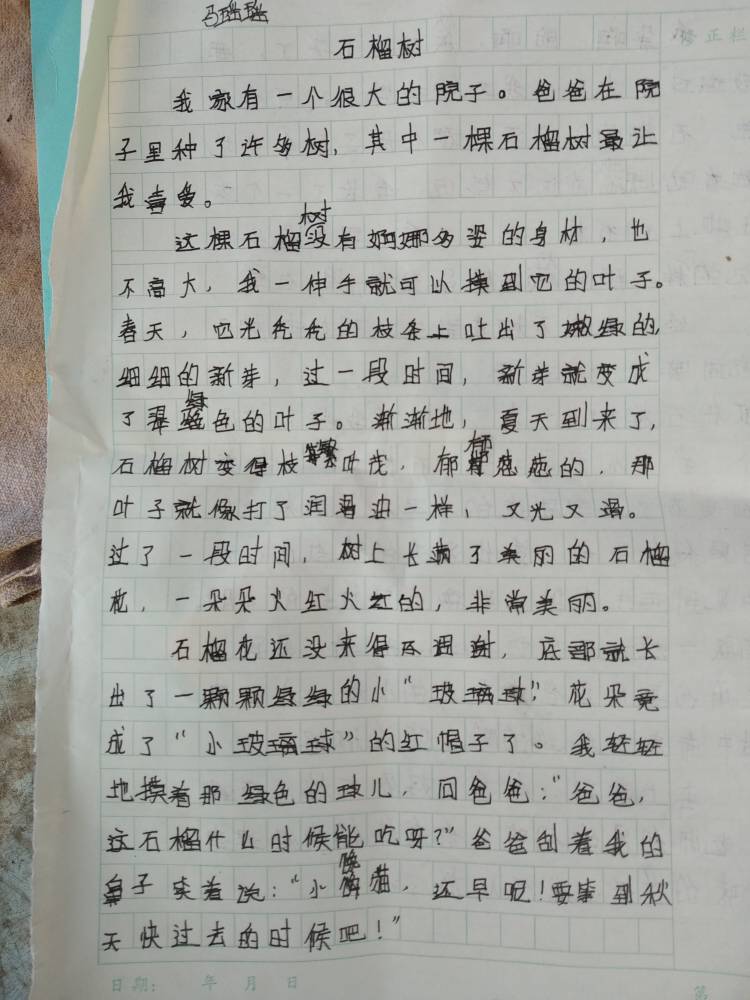 马瑶瑶
石榴树
我家有一个很大的院子。爸爸在院
子里种了许多树，其中一棵石榴树最让
我喜爱。
这棵石榴树没有婀娜多姿的身材，也
不高大，我一伸手就可以摸到它的叶子。
春天，它光秃秃的枝条上吐出了嫩绿的，
细细的新芽，过一段时间，新芽就变成
了翠绿色的叶子。渐渐地，夏天到来了，
石榴树变得枝繁叶茂，郁郁葱葱的，那
叶子就像打了润滑油一样，又光又滑。
过了一段时间，树上长满了美丽的石榴
花，一朵朵火红火红的，非常美丽。
石榴花还没来得及凋谢，底部就长
出了一颗颗绿绿的小“玻璃球”，花朵竟
成了“小玻璃球”的红帽子了。我轻轻
地摸着那绿色的球儿，问爸爸：“爸爸，
这石榴什么时候能吃呀？”爸爸刮着我的
鼻子笑着说：“小馋猫，还早呢！要等到秋
天快过去的时候吧！”
日期： 年 月 日
第
修正栏